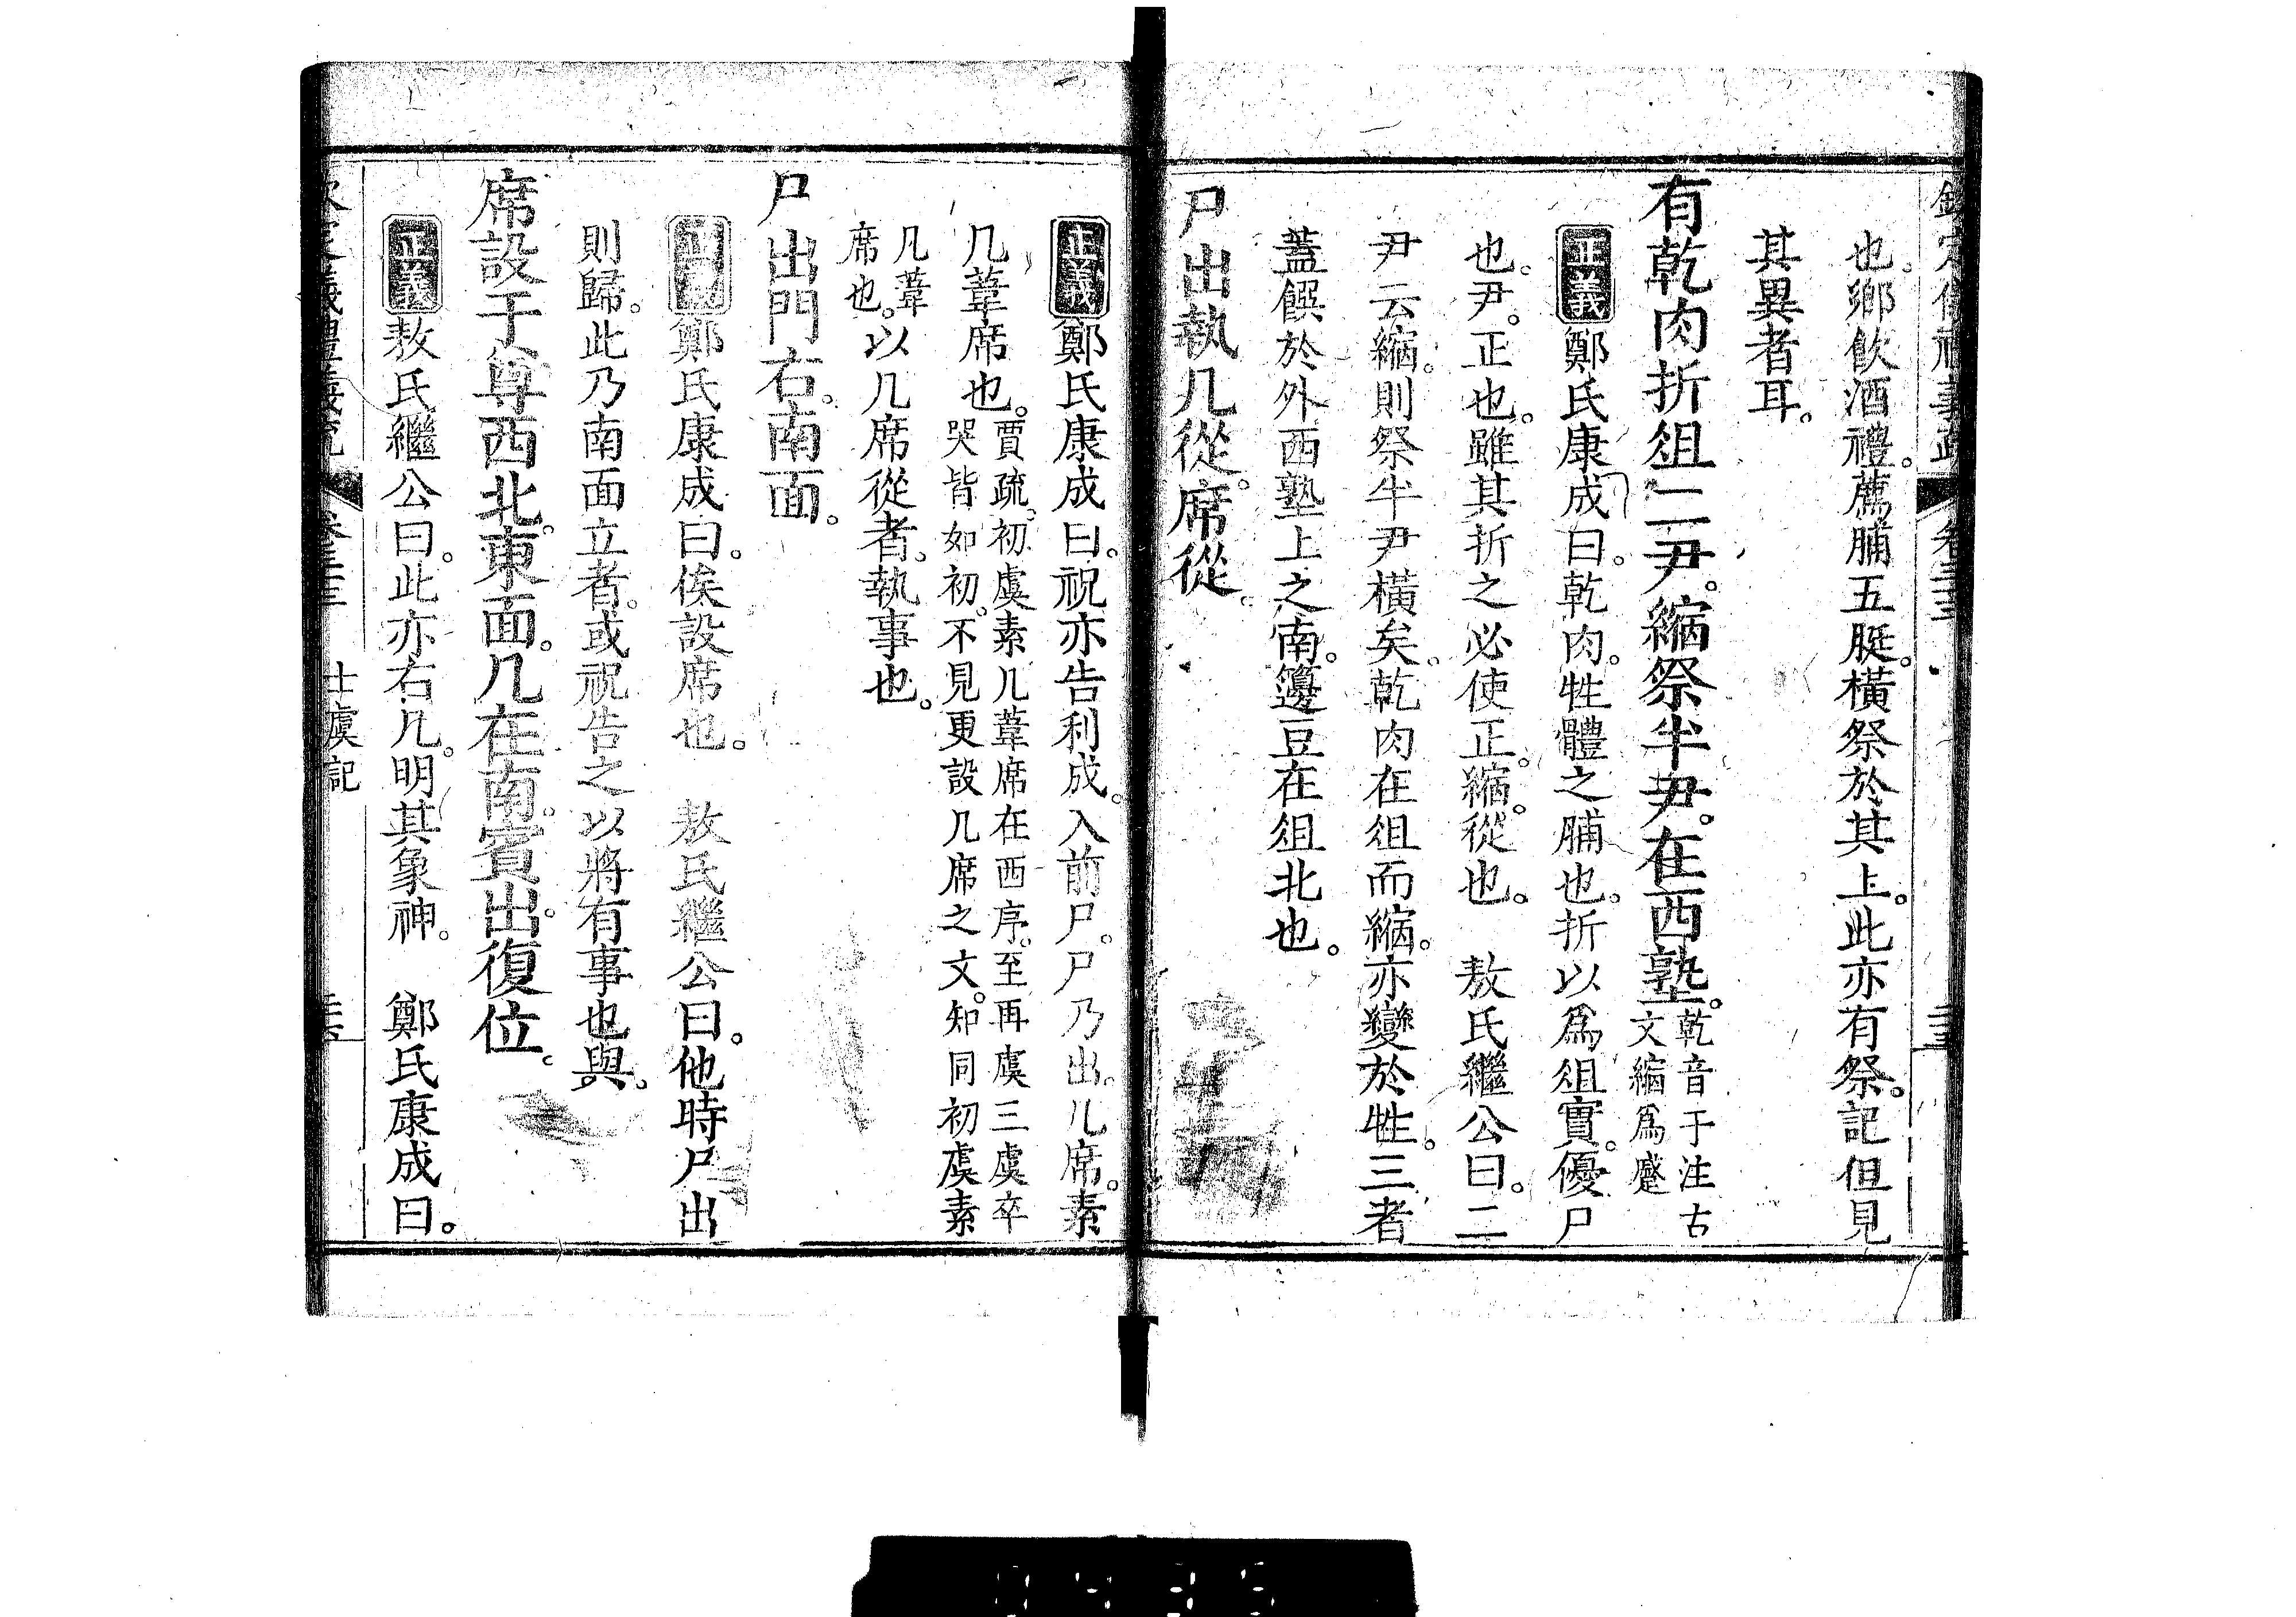 也。鄉飲酒禮。薦脯五脡。橫祭於其上。此亦有祭。記但見
其異者耳。
有乾肉折俎二尹。縮祭半尹。在西塾。乾音于注古
文縮爲蹙
正義鄭氏康成曰。乾肉。牲體之脯也。折以爲俎實。優尸
也。尹。正也。雖其折之必使正。縮。從也。 敖氏繼公曰。二
尹云縮。則祭半尹橫矣。乾肉在俎而縮。亦變於牲。三者
蓋饌於外西塾上之南。籩豆在俎北也。
尸出執几從。席從。
正義鄭氏康成曰。祝亦告利成。入前尸。尸乃出。几席。素
几葦席也。賈疏。初虞素几葦席在西序。至再虞三虞卒
哭皆如初。不見更設几席之文。知同初虞素
几葦
席也。以几席從者。執事也。
尸出門右。南面。
正義鄭氏康成曰。俟設席也。 敖氏繼公曰。他時尸出
則歸。此乃南面立者。或祝告之以將有事也與。
席設于尊西北。東面。几在南。賓出。復位。
正義敖氏繼公曰。此亦右几。明其象神。 鄭氏康成曰。
士虞記